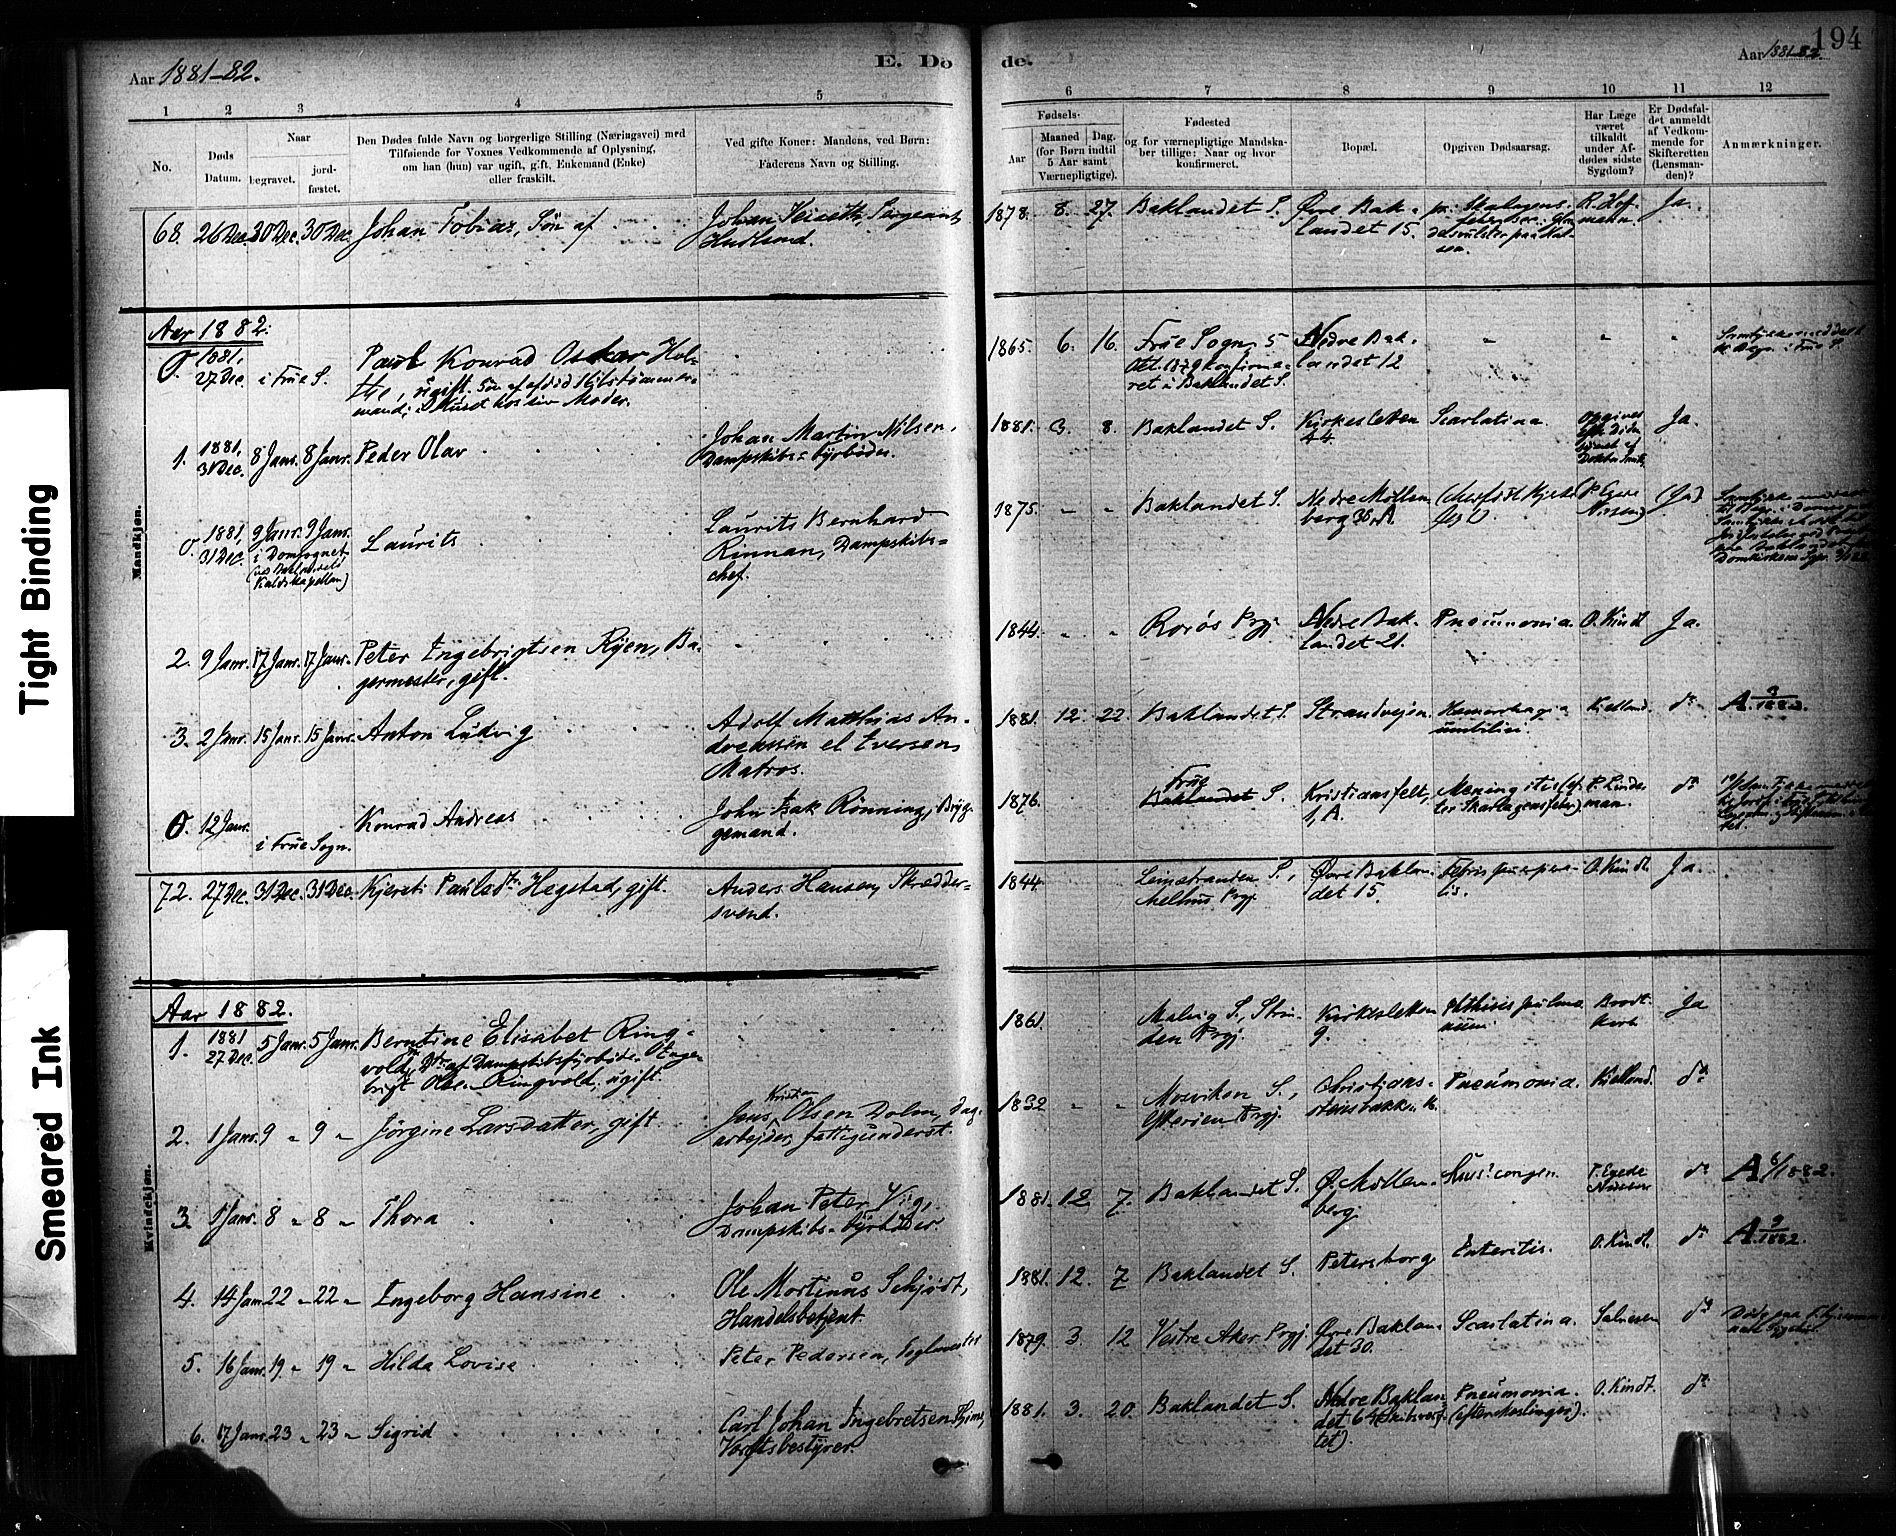 Tight Binding
Smeared Ink
Aar 1881-82.
E. Dö
de.
Aar 1881-82.
194
1 2 3 4 5 6 7 8 9 10 11 12
No.
Døds Datum.
Naar
begravet.
jord-
fæstet.
Den Dødes fulde Navn og borgerlige Stilling (Næringsvei) med
Tilføiende for Voxnes Vedkommende af Oplysning,
om han (hun) var ugift, gift, Enkemand (Enke)
eller fraskilt.
Ved gifte Koner: Mandens, ved Børn:
Faderens Navn og Stilling.
Fødsels-
Aar
Maaned Dag.
(for Børn indtil
5 Aar samt
Værnepligtige).
Fødested
og for værnepligtige Mandska-
ber tillige: Naar og hvor
konfirmeret.
Bopæl.
Opgiven Dødsaarsag.
Har Læge
været
tilkaldt
under Af-
dødes sidste
Sygdom?
Er Dødsfal-
det anmeldt
af Vedkom-
mende for
Skifteretten
(Lensman-
den)?
Anmærkninger.
Mandkjøn.
68. 26 Dec. 30 Dec. 30 Dec. Johan Tobias, Søn af
Johan Sergeant,
1878. 8. 27. Baklandet S. Øvre Bak-
landet 15.
Ja.
Aar 1882.
0. 1881, 27 Dec. i Frue S.
Paul Konrad Oskar Hol-
the, ugift, Søn af afdød Skibstømmer-
mand; i Huset hos sin Moder.
1865. 6. 16. Frue Sogn. 5
Okt. 1879 konfirme-
ret i Baklandet S.
Nedre Bak-
landet 12
1. 1881, 31 Dec. 8 Janr. 8 Janr. Peder Olav
Johan Martin Nilsen,
Dampskibs-Fyrbøder.
1881. 3. 8. Baklandet S. Kirkesletten
44.
Scarlatina Ja.
0. 1881, 31 Dec. 9 Janr. 9 Janr. Laurits
i Domsognet
Laurits Bernhard
Rinnan, Dampskibs-
chef.
1875. - - Baklandet S. Nedre Møllen-
berg 36, A. (Ja)
2. 9 Janr. 17 Janr. 17 Janr. Peter Ingebrigtsen Ryen, Ba-
germester, gift.
1844. - - Rorøs Prgj. Nedre Bak-
landet 21.
Pneumonia. O. Kindt Ja.
3. 2 Janr. 15 Janr. 15 Janr. Anton Ludvig
Adolf Mathias An-
dreassen el Iversen,
Matros.
1881. 12. 22. Baklandet S. Strandveien. Hemorrhagia
umbilici. Kielland. do A. 3/1882.
0. 12 Janr. i Frue Sogn. Konrad Andreas
John Isak Rønning, Bryg-
gemand.
1876. Frue
Baklandet S. Kristiansfelt,
1, A.
Meningitis (ef-
ter Skarlagensfeber) P. Linde-
man. do
72. 27 Dec. 31 Dec. 31 Dec. Kjersti Paulsdtr. Hegstad, gift.
Anders Hansen, Skrædder-
svend.
1844 Leinstranden S.,
Melhus Prgj.
Øvre Baklan-
det 15.
Febris puerpera-
lis. O. Kindt. Ja.
Kvindekjøn.
Aar 1882.
1. 1881 27 Dec. 5 Janr. 5 Janr. Berntine Elisabet Ring-
vold, Dtr. af Dampskibsfyrbøder Inge-
brigt Olsen Ringvold, ugift.
1861. Malvig S., Strin-
den Prgj.
Kirkesletten
9.
Phthisis pulmo-
num. Ja
2. 1 Janr. 9 " 9 " Jørgine Larsdatter, gift.
Kristian
Jens Olsen Dolm, Dag-
arbejder, fattigunderst.
1832 - - Mosviken S.,
Ytterøen Prgj.
Christians-
stensbakken
Pneumonia. Kielland. do
3. 1 Janr. 8 " 8 " Thora
Johan Peter Viig,
Dampskibs-Fyrbøder
1881. 12 7. Baklandet S. Ø. Møllen-
berg.
P. Egede
Nissen do A 6/1882.
4. 14 Janr. 22 " 22 " Ingeborg Hansine
Ole Mortinus Schjødt,
Handelsbetjent.
1881. 12. 7 Baklandet S. Petersborg Enteritis. O. Kindt. do A 9/1882.
5. 16 Janr. 19 " 19 " Hilda Lovise
Peter Pedersen,
1879. 3 12 Vestre Aker Prgj. Øvre Baklan-
det 30. Scarlatina. Salvesen do
6. 17 Janr. 23 " 23 " Sigrid
Carl Johan Ingebretsen Thime,
Værftsbestyrer.
1881. 3. 20. Baklandet S. Nedre Baklan-
det 64 (Skibsverf-
tet).
Pneumonia.
(efter Meslinger). O. Kindt. do